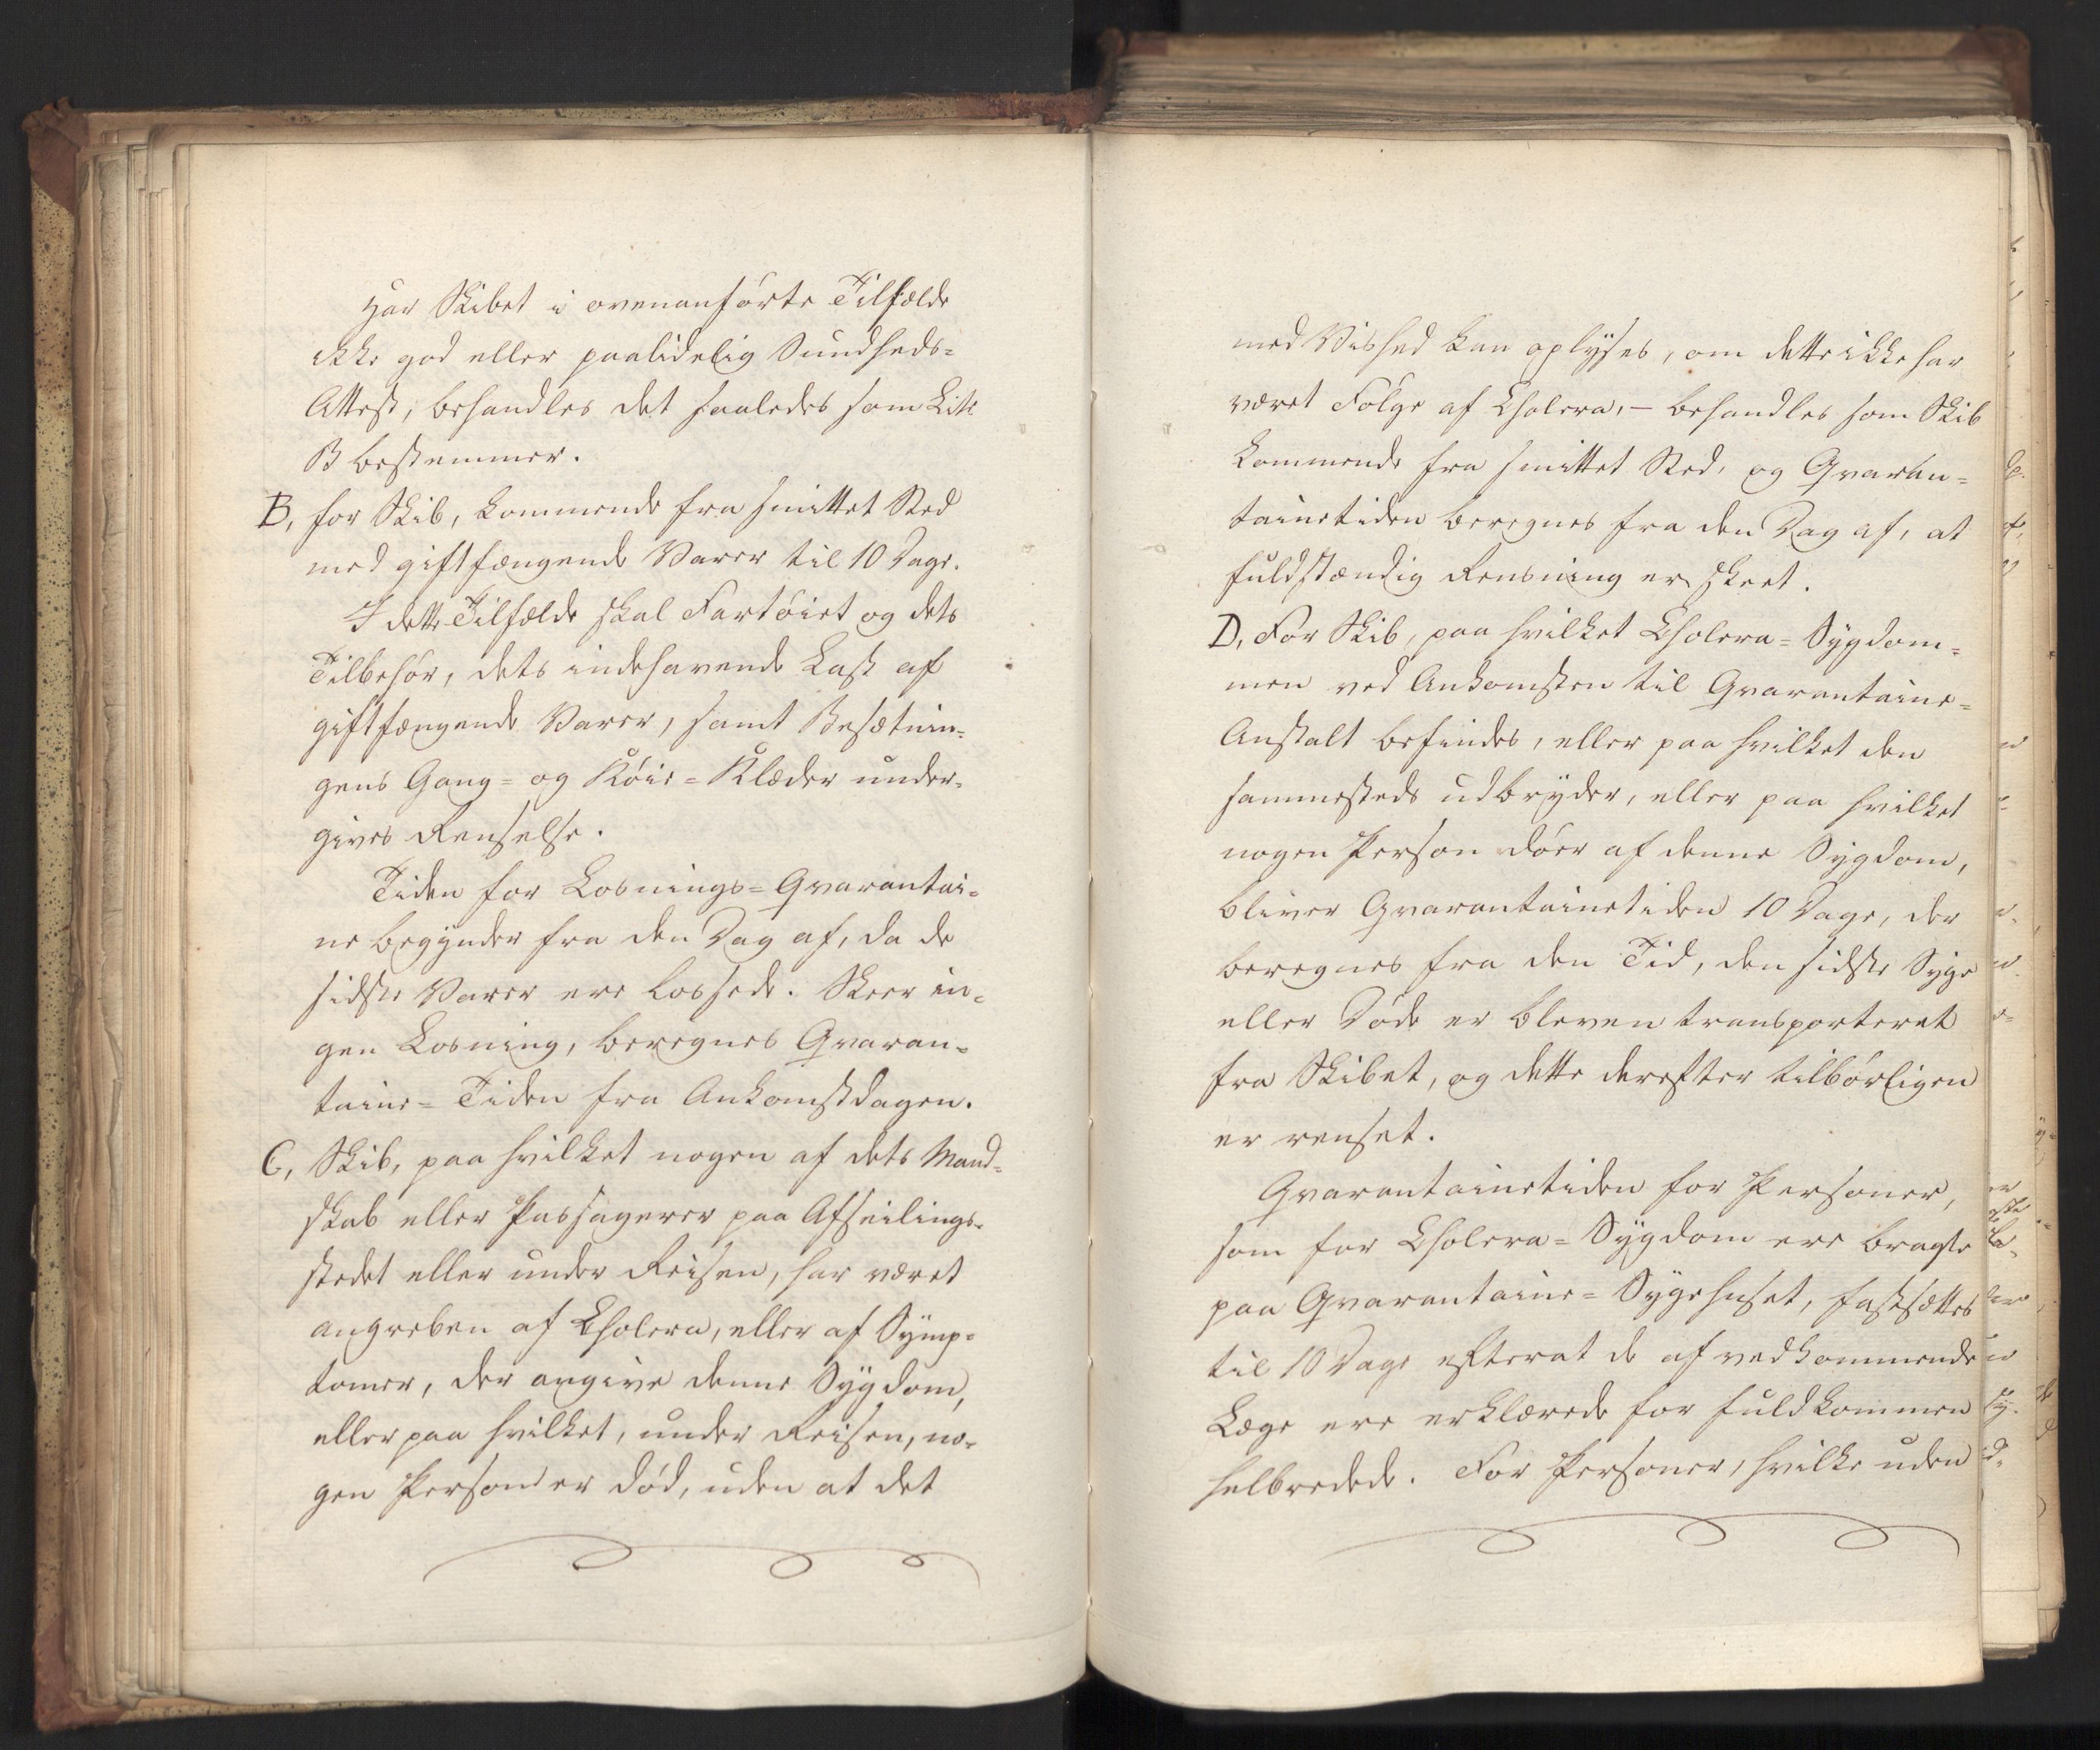 Har Skibet i ovenanførte Tilfælde
ikke god eller paalidelig Sundheds-
Attest, behandles det saaledes som Litr
B bestemmer.
B, for Skib, kommende fra smittet Sted
med giftfængende Varer til 10 Dage.
I dette Tilfælde skal Fartøiet og dets
Tilbehør, dets indehavende Last af
giftfængende Varer, samt Besætnin-
gens Gang- og Køie-Klæder under-
gives Renselse.
Tiden for Losnings-Qvarantai-
ne begynder fra den Dag af, da de
sidste Varer ere lossede. Skeer in-
gen Losning, beregnes Qvaran-
taine-Tiden fra Ankomstdagen.
C, Skib, paa hvilket nogen af dets Mand-
skab eller Passagerer paa Afseilings-
stedet eller under Reisen, har været
angreben af Cholera, eller af Symp-
tomer, der angive denne Sygdom,
eller paa hvilket, under Reisen, no-
gen Person er død, uden at det
med Vished kan oplyses, om dette ikke har
været Følge af Cholera, – behandles som Skib
kommende fra smittet Sted, og Qvaran-
tainetiden beregnes fra den Dag af, at
fuldstændig Rensning er skeet.
D, For Skib, paa hvilket Cholera-Sygdom-
men ved Ankomsten til Qvarantaine-
Anstalt befindes, eller paa hvilket den
sammesteds udbryder, eller paa hvilket
nogen Person døer af denne Sygdom,
bliver Qvarantainetiden 10 Dage, der
beregnes fra den Tid, den sidste Syge
eller Døde er bleven transporteret
fra Skibet, og dette derefter tilbørligen
er renset.
Qvarantainetiden for Personer,
som for Cholera-Sygdom ere bragte
paa Qvarantaine-Sygehuset, fastsættes
til 10 Dage efterat de af vedkommende
Læge ere erklærede for fuldkommen
helbredede. For Personer, hvilke uden